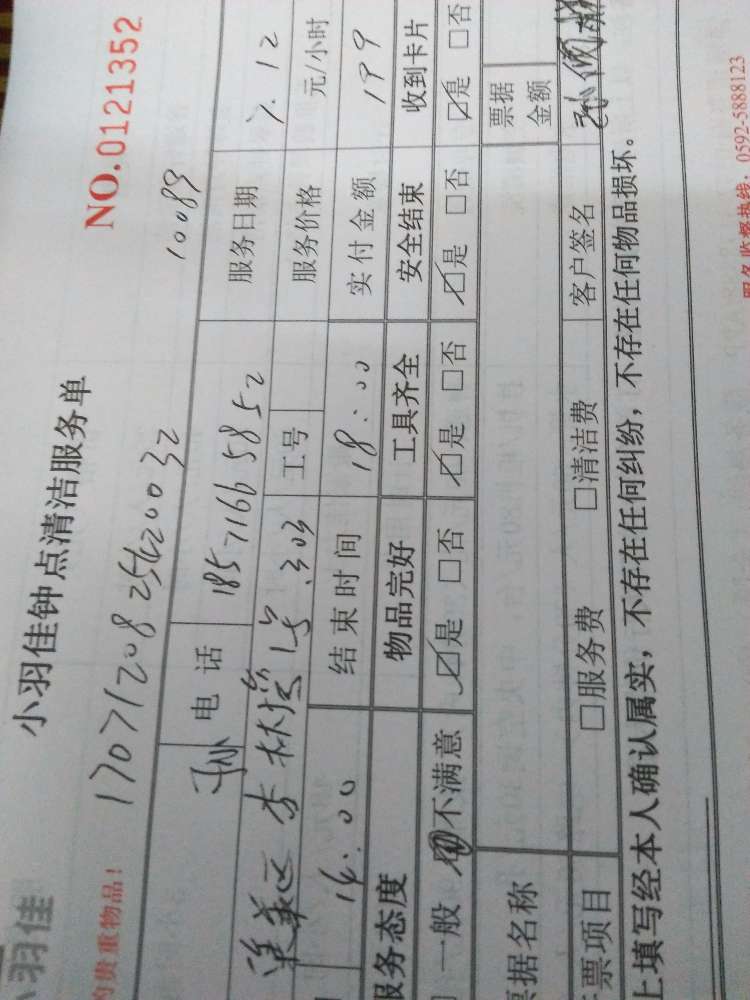 小羽佳
小羽佳钟点清洁服务单
NO.0121352
的贵重物品!
10083
电话 18571665852 服务日期 7.12
303 工号 服务价格 元/小时
14:00 结束时间 18:00 实付金额 199
服务态度 物品完好 工具齐全 安全结束 收到卡片
一般 不满意 ☑是 □否 ☑是 □否 ☑是 □否 ☑是 □否
票据名称 票据金额
票项目 □服务费 □清洁费 客户签名
上填写经本人确认属实，不存在任何纠纷，不存在任何物品损坏。
服务监督热线：0592-5888123